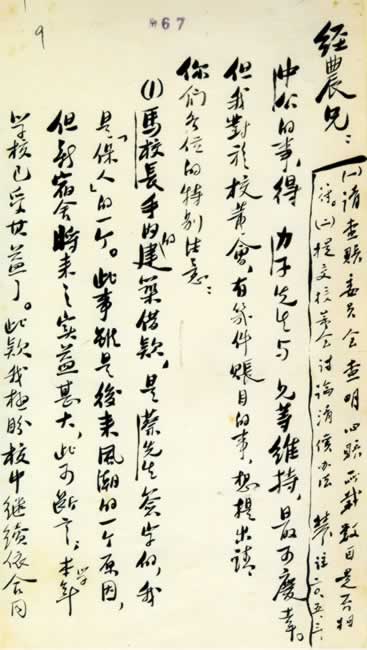 967
9
經農兄：
(一)請查賬委員会查明此賬所載數目是否相
符。(二)提交校董会討論清償办法
沖公的事，得力子先生与兄等維持，最可慶幸。
但我對於校董會，有幾件賬目的事，想提出請
你们各位的特别注意：
(1)馬校長手内的建築借款，是蔡先生簽字的，我
是「保人」的一个。此事雖是後来風潮的一个原因，
但新宿舍將来之实益甚大，此可断言。本年
學校已受其益了。此款我極盼校中继續依合同